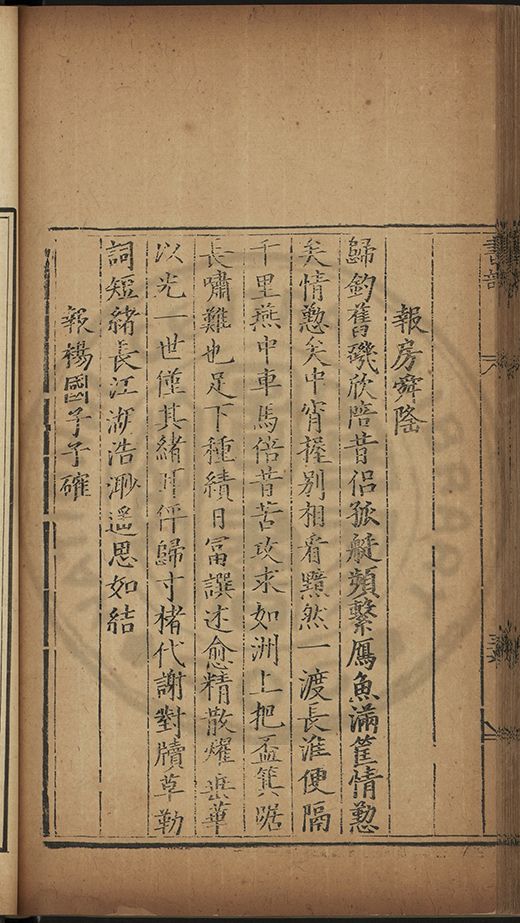 報房舜隆
歸釣舊磯欣陪昔侶孤艇頻繫鴈魚滿筐情懃
矣情懃矣中宵握別相看黯然一渡長淮便隔
千里燕中車馬倍昔苦攻求如洲上把盃箕踞
長嘯難也足下種績日富譔述愈精散燿垂華
以光一世僅其緒耳伻歸寸楮代謝對牘草勒
詞短緒長江湖浩渺遥思如結
報楊國子子確